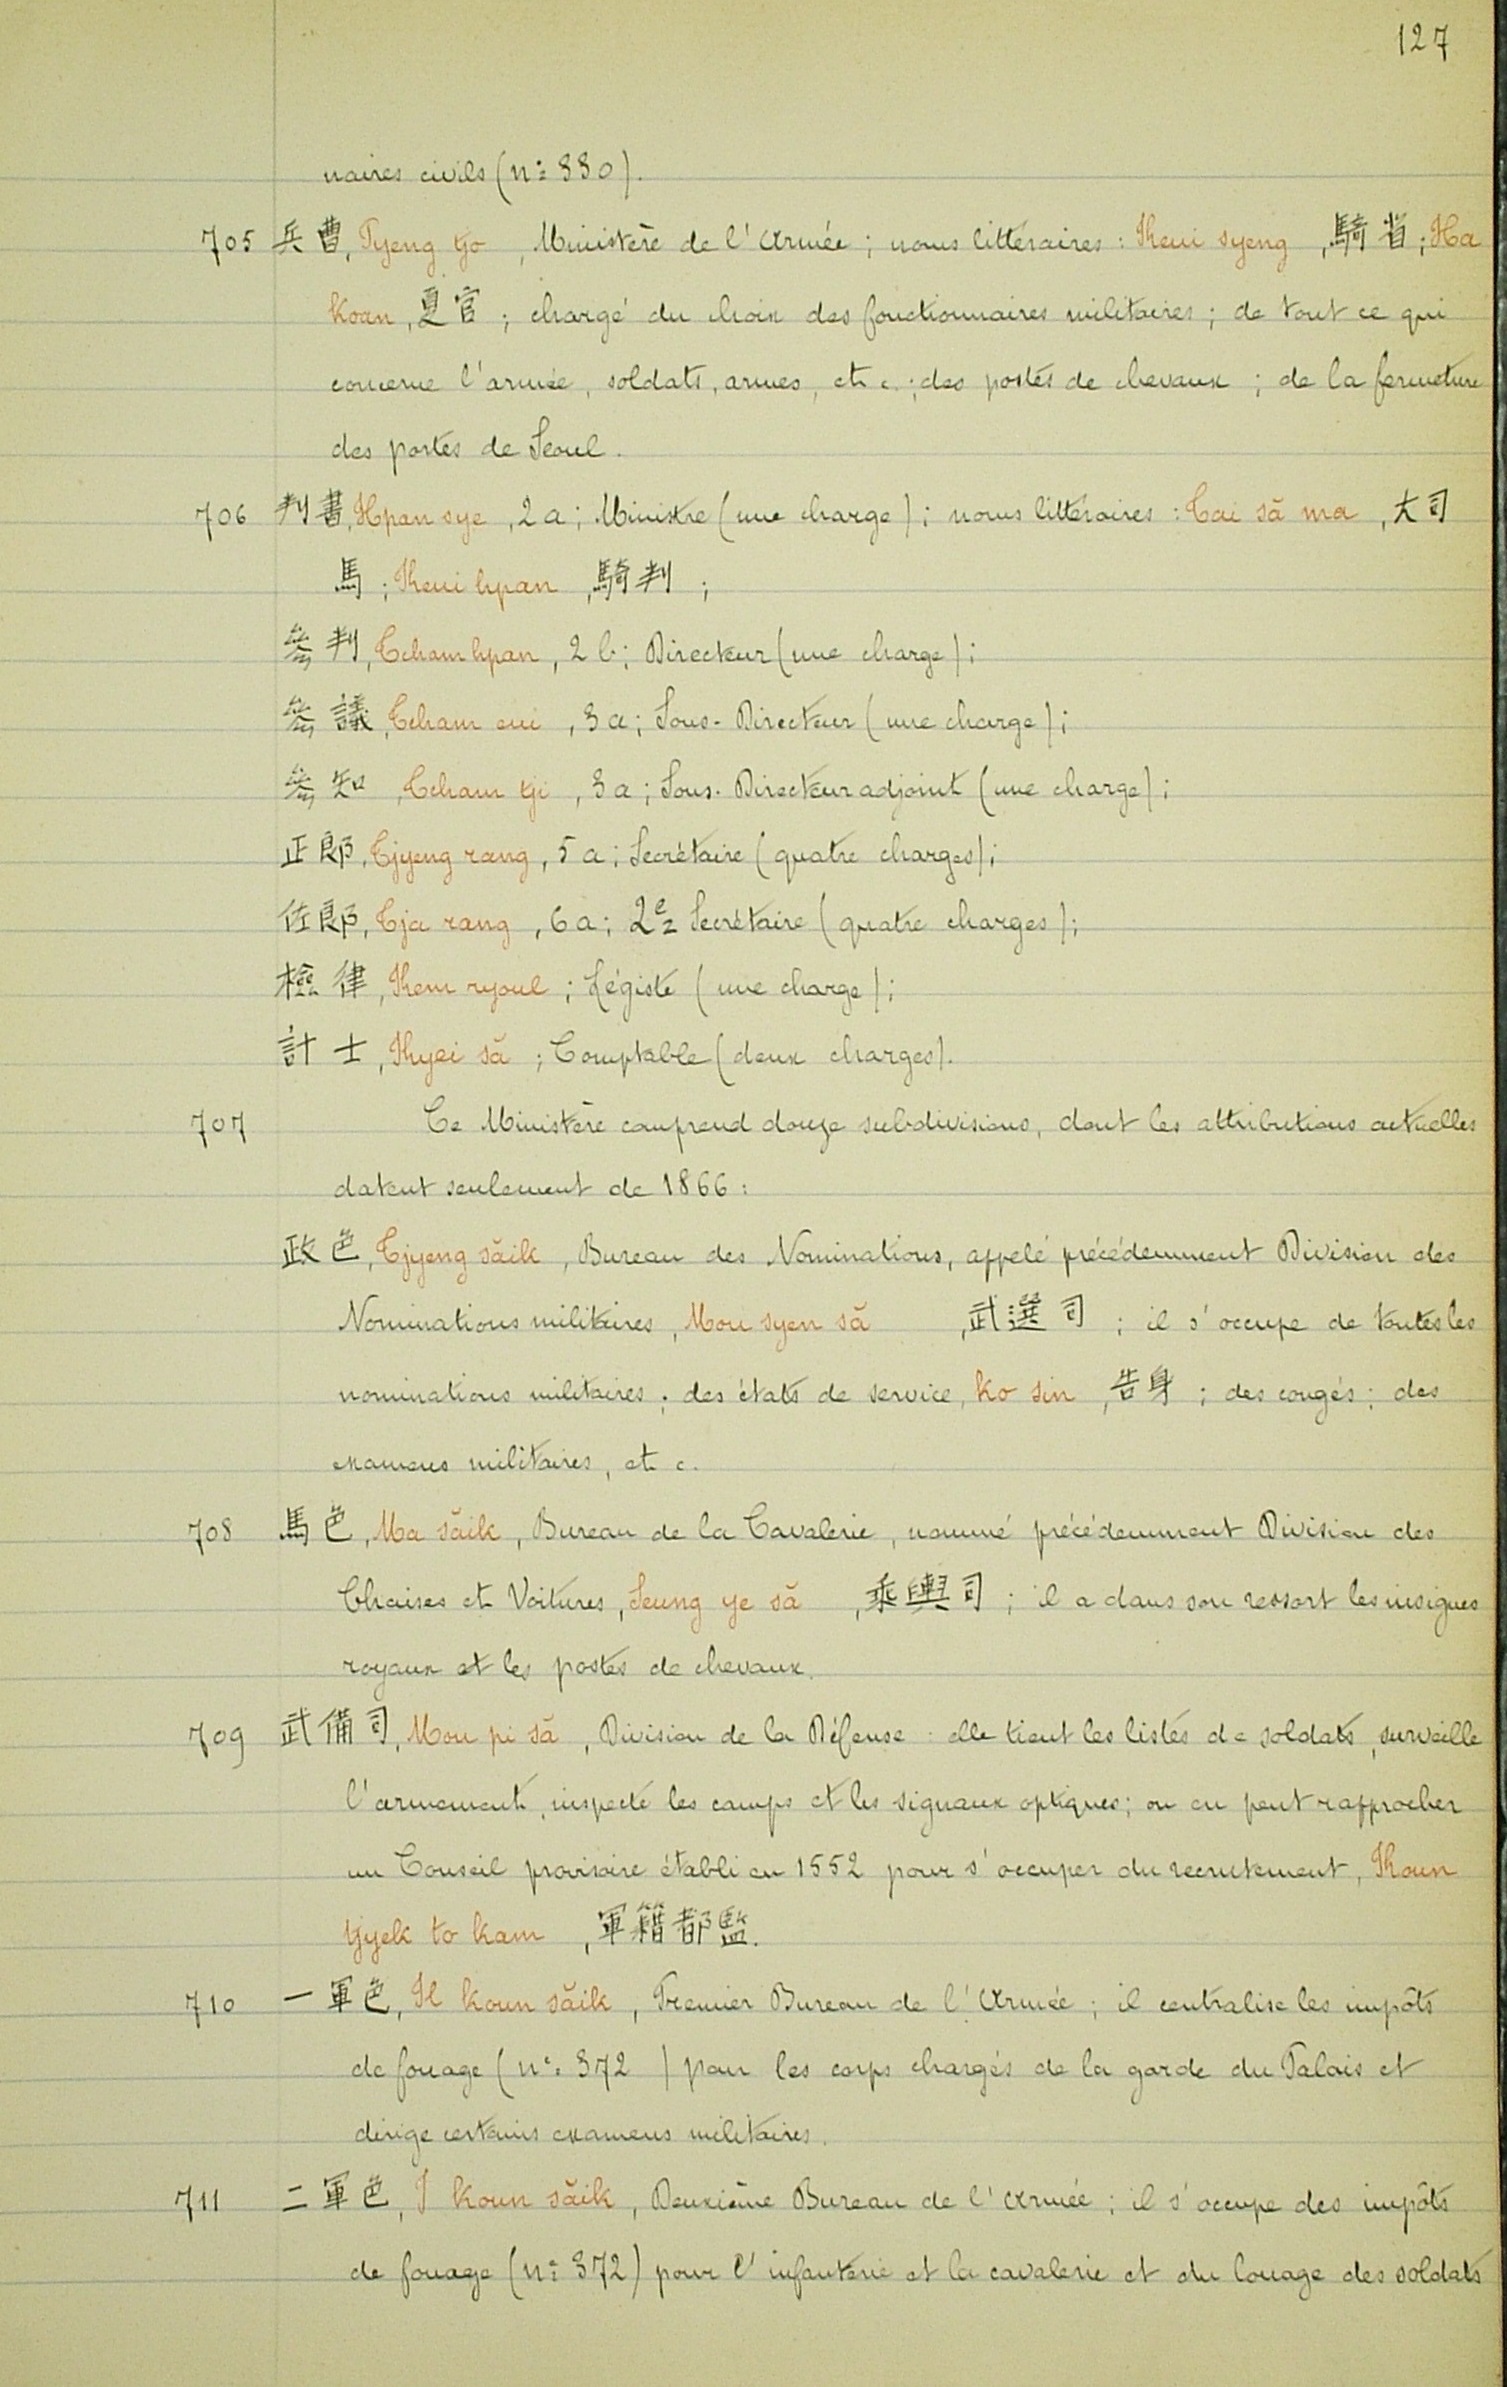 127
naires civils (nº 330).
705 兵曹, Pyeng tjo, Ministère de l'Armée ; noms littéraires : Keui syeng, 騎省 ; Ha
koan, 夏官 ; chargé du choix des fonctionnaires militaires ; de tout ce qui
concerne l'armée, soldats, armes, etc. ; des postes de chevaux ; de la fermeture
des portes de Seoul.
706 判書, Hpan sye, 2a ; Ministre (une charge) ; noms littéraires : Tai să ma, 大司
馬 ; Keui hpan, 騎判 ;
參判, Tcham hpan, 2b ; Directeur (une charge) ;
參議, Tcham eui, 3a ; Sous-Directeur (une charge) ;
參知, Tcham tji, 3a ; Sous-Directeur adjoint (une charge) ;
正郎, Tjyeng rang, 5a ; Secrétaire (quatre charges) ;
佐郎, Tja rang, 6a ; 2e Secrétaire (quatre charges) ;
檢律, Kem ryoul ; Légiste (une charge) ;
計士, Kyei să ; Comptable (deux charges).
707 Ce Ministère comprend douze subdivisions, dont les attributions actuelles
datent seulement de 1866 :
政色, Tjyeng săik, Bureau des Nominations, appelé précédemment Division des
Nominations militaires, Mou syen să, 武選司 ; il s'occupe de toutes les
nominations militaires ; des états de service, ko sin, 告身 ; des congés ; des
examens militaires, etc.
708 馬色, Ma săik, Bureau de la Cavalerie, nommé précédemment Division des
Chaises et Voitures, Seung ye să, 乘輿司 ; il a dans son ressort les insignes
royaux et les postes de chevaux.
709 武備司, Mou pi să, Division de la Défense : elle tient les listes de soldats, surveille
l'armement, inspecte les camps et les signaux optiques ; on en peut rapprocher
un Conseil provisoire établi en 1552 pour s'occuper du recrutement, Koun
tjyek to kam, 軍籍都監.
710 一軍色, Il koun săik, Premier Bureau de l'Armée ; il centralise les impôts
de fouage (nº 372) pour les corps chargés de la garde du Palais et
dirige certains examens militaires.
711 二軍色, I koun săik, Deuxième Bureau de l'Armée ; il s'occupe des impôts
de fouage (nº 372) pour l'infanterie et la cavalerie et du louage des soldats